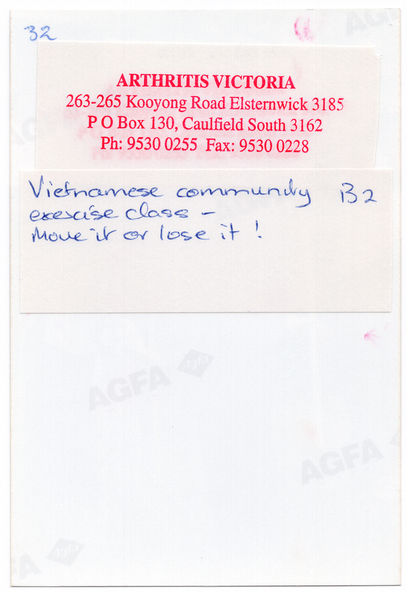 32
ARTHRITIS VICTORIA
263-265 Kooyong Road Elsternwick 3185
P O Box 130, Caulfield South 3162
Ph: 9530 0255 Fax: 9530 0228
Vietnamese community B2
exercise class -
Move it or lose it !
AGFA
AGFA
AGFA
AGFA